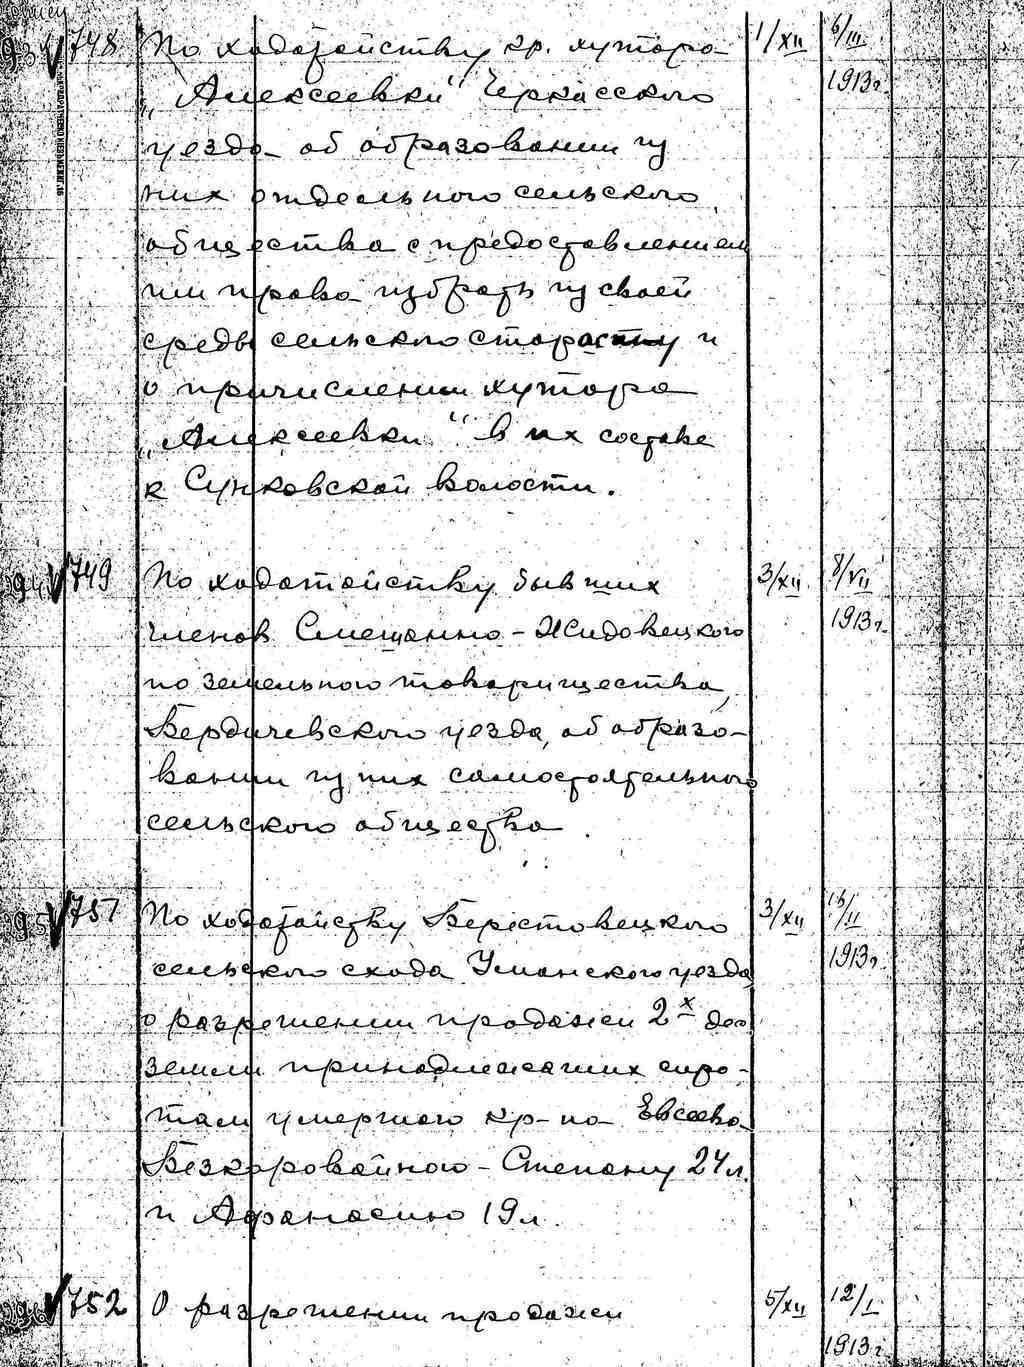 748 По ходатайству кр. хутора 1/XII 6/III
„Алексеевки“ Черкасского 1913г.
уезда об образовании из
них отдельного сельского
общества с предоставлением
им права избрать из своей
среды сельского старосту и
о причислении хутора
„Алексеевки“ в их составе
к Сунковской волости.
749 По ходатайству бывших 3/XII 8/VII
членов Смещанно-Жидовецкого 1913г.
поземельного товарищества,
Бердичевского уезда, об образо-
вании из них самостоятельного
сельского общества.
751 По ходатайству Берестовецкого 3/XII 16/II
сельского схода Уманского уезда 1913г.
о разрешении продажи 2х дес.
земли принадлежащих сиро-
там умершего кр-на Евсева
Безкоровайного - Степану 24 л.
и Афанасию 19 л.
752 О разрешении продажи 5/XII 12/I
1913г.